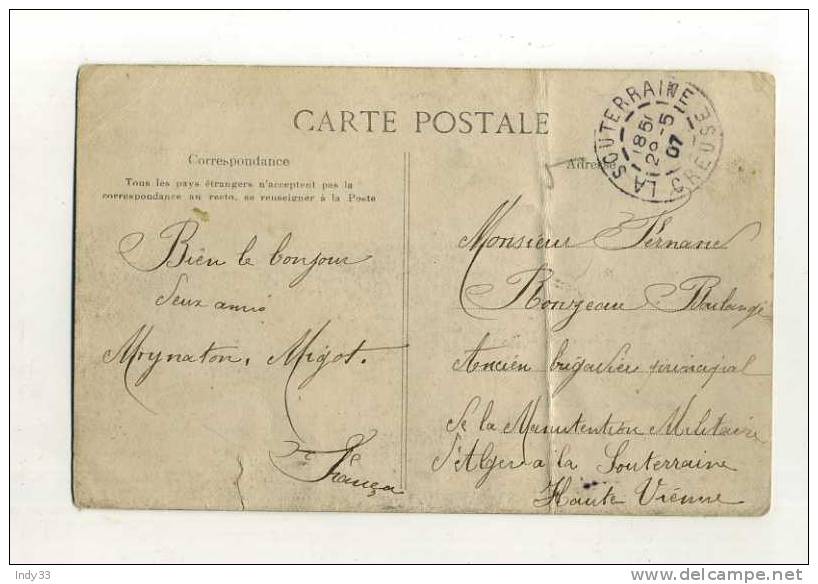 CARTE POSTALE
Correspondance
Tous les pays étrangers n'acceptent pas la
correspondance au recto, se renseigner à la Poste
Bien le bonjour
deux amis
Migot.
Adresse
LA SOUTERRAINE
CREUSE
29-5
07
Monsieur Fernand
Ronzeau Boulangé
Ancien brigadier principal
de la Manutention Militaire
d'Alger a la Souterraine
Haute Vienne
Indy33
www.delcampe.net